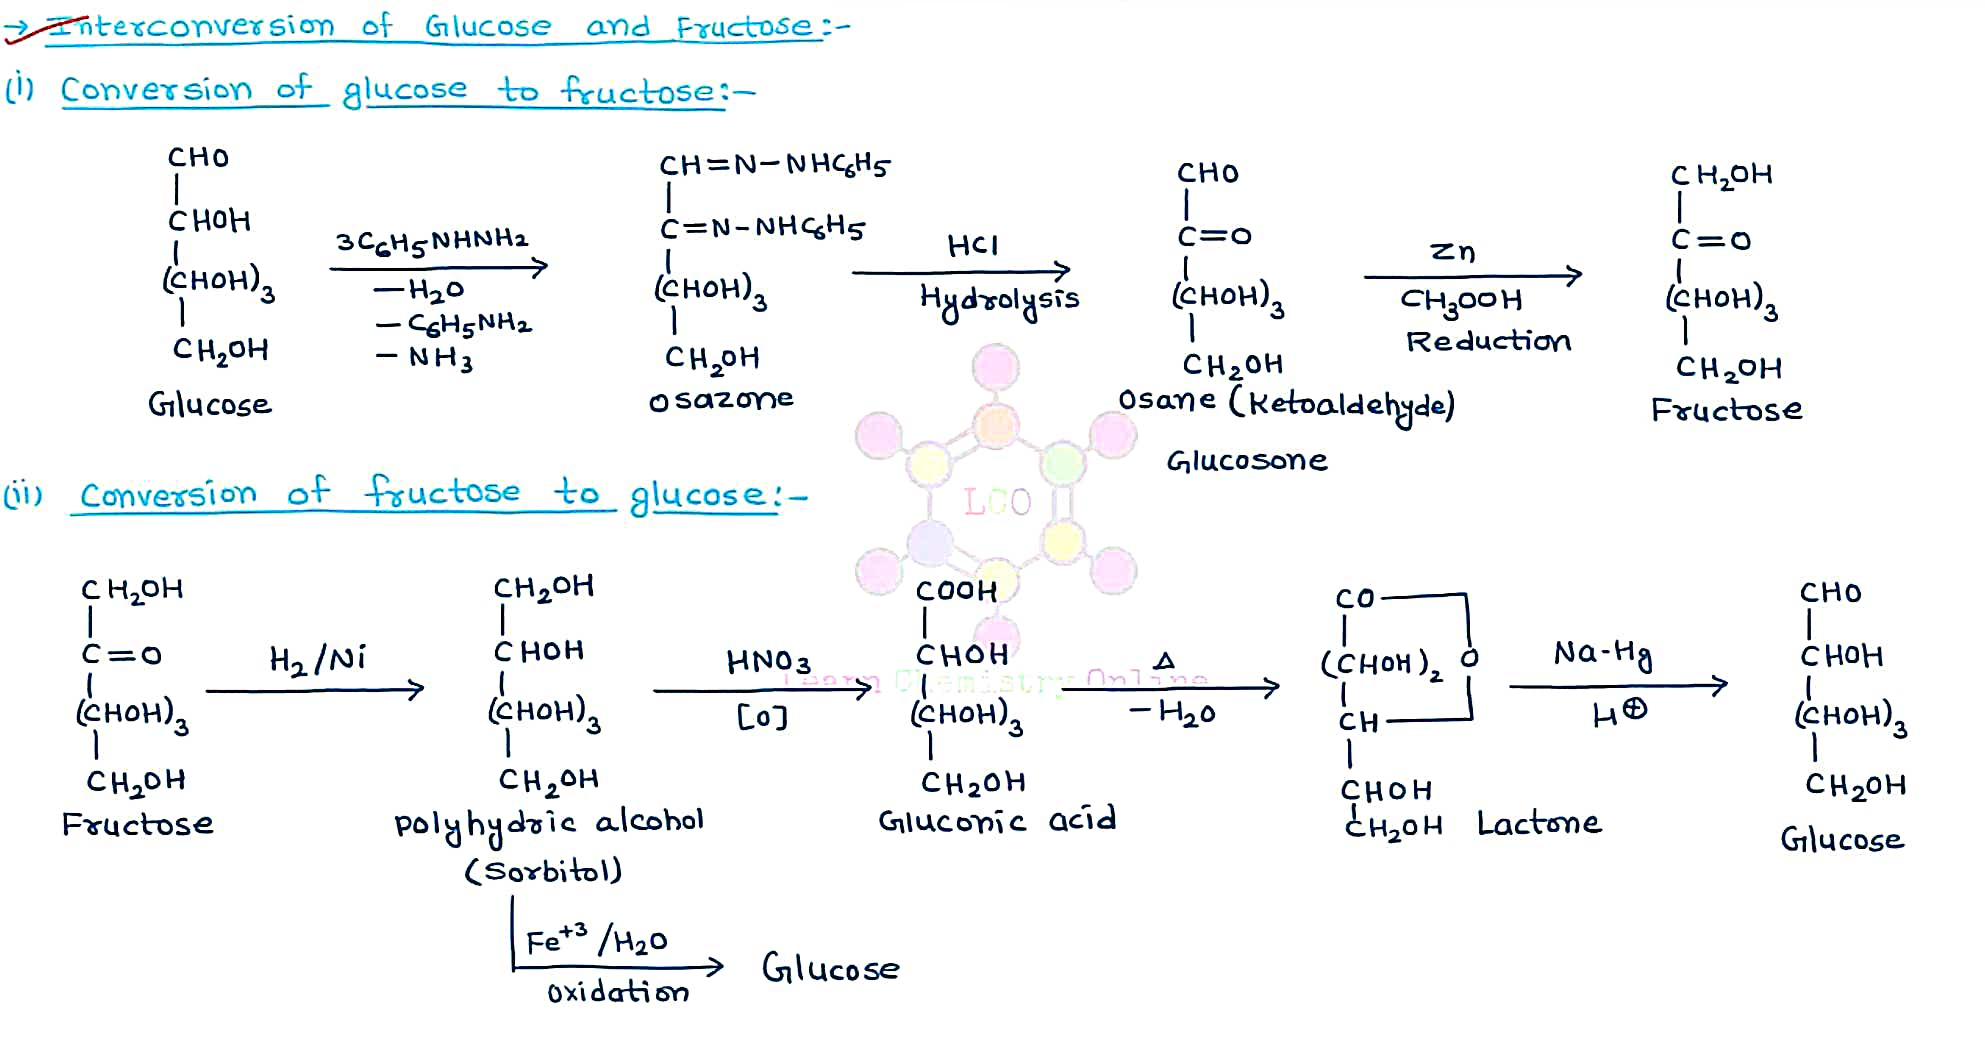 → Interconversion of Glucose and Fructose:-
(i) Conversion of glucose to fructose:-
CHO
CHOH
(CHOH)₃
CH₂OH
Glucose
3C₆H₅NHNH₂
—H₂O
— C₆H₅NH₂
— NH₃
CH=N—NHC₆H₅
C=N-NHC₆H₅
(CHOH)₃
CH₂OH
osazone
HCl
Hydrolysis
CHO
C=O
(CHOH)₃
CH₂OH
Osane (Ketoaldehyde)
Glucosone
Zn
CH₃OOH
Reduction
CH₂OH
C=O
(CHOH)₃
CH₂OH
Fructose
LCO
Learn Chemistry Online
(ii) Conversion of fructose to glucose:-
CH₂OH
C=O
(CHOH)₃
CH₂OH
Fructose
H₂/Ni
CH₂OH
CHOH
(CHOH)₃
CH₂OH
polyhydric alcohol
(Sorbitol)
HNO₃
[O]
COOH
CHOH
(CHOH)₃
CH₂OH
Gluconic acid
Δ
—H₂O
CO
(CHOH)₂ O
CH
CHOH
CH₂OH Lactone
Na-Hg
H⊕
CHO
CHOH
(CHOH)₃
CH₂OH
Glucose
Fe⁺³/H₂O
oxidation
Glucose